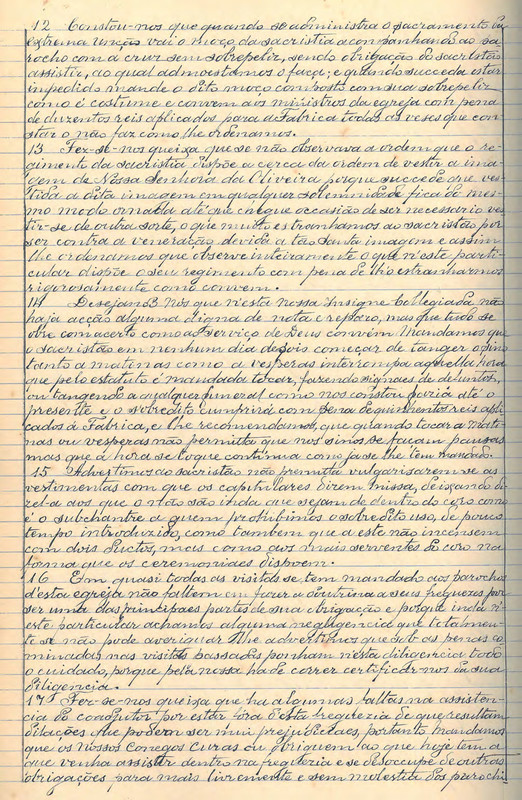 12 Constou-nos que quando se administra o sacramento da
extrema unção vai o moço da sacristia acompanhando ao pa-
rocho com a cruz sem sobrepeliz, sendo obrigação do sacristão
assistir, ao qual admoestamos o faça; e quando succeda estar
impedido mande o dito moço composto com sua sobrepeliz
como é costume e convem aos ministros da egreja com pena
de duzentos reis aplicados para a Fabrica todas as veses que con-
star o não faz como lhe ordenamos.
13 Fez-se-nos queixa que se não observava a ordem que o re-
gimento da sacristia dispõe a cerca da ordem de vestir a ima-
gem de Nossa Senhora da Oliveira porque succede que ves-
tida a dita imagem em qualquer solemnidade fica do mes-
mo modo ornada até que chegue occasião de ser necessario ves-
tir-se de outra sorte, o que muito estranhamos ao sacristão por
ser contra a veneração devida a tão santa imagem e assim
lhe ordenamos que observe inteiramente o que n'este parti-
cular dispõe o seu regimento com pena de lho estranharmos
rigorosamente como convem.
14 Desejando Nós que n'esta nossa Insigne Collegiada não
haja acção alguma digna de nota e reparo, mas que tudo se
obre com acerto como ao serviço de Deus convem Mandamos que
o sacristão em nenhum dia depois começar de tanger o sino
tanto a matinas como a vesperas interrompa aquella hora
que pelo estatuto é mandada tocar, fazendo signaes de defuntos,
ou tangendo a qualquer funeral como nos constou fazia até o
presente e o sobredito cumprirá com pena de quinhentos reis apli-
cados á Fabrica, e lhe recomendamos, que quando tocar a mati-
nas ou vesperas não permita que nos sinos se façam pausas
mas que a hora se toque continua como já se lhe tem mandado.
15 Advertimos ao sacristão não premita vulgarisarem-se as
vestimentas com que os capitulares dizem missa, deixando di-
zel-a aos que o não são inda que sejam de dentro do coro como
é o subchantre a quem prohibimos o sobredito uso, de pouco
tempo introduzido, como tambem que a este não incensem
com dois ductos, mas como aos mais serventes do coro na
forma que os ceremoniaes dispoem.
16 Em quasi todas as visitas se tem mandado aos parochos
d'esta egreja não faltem em fazer a doutrina a seus freguezes por
ser uma das principaes partes de sua obrigação e porque inda n'
este particular achamos alguma negligencia que totalmen-
te se não pode averiguar lhe advertimos que sob as penas co-
minadas nas visitas passadas ponham n'esta diligencia todo
o cuidado, porque pela nossa hade correr certificar-nos da sua
diligencia.
17 Fez-se-nos queixa que ha algumas faltas na assisten-
cia do coadjutor por estar fóra d'esta freguezia de que resultam
dilações que podem ser mui prejudiciaes, portanto mandamos
que os nossos Conegos Curas ou obriguem ao que hoje tem a
que venha assistir dentro na freguezia e se desoccupe de outras
obrigações para mais livremente e sem molestia dos parochi